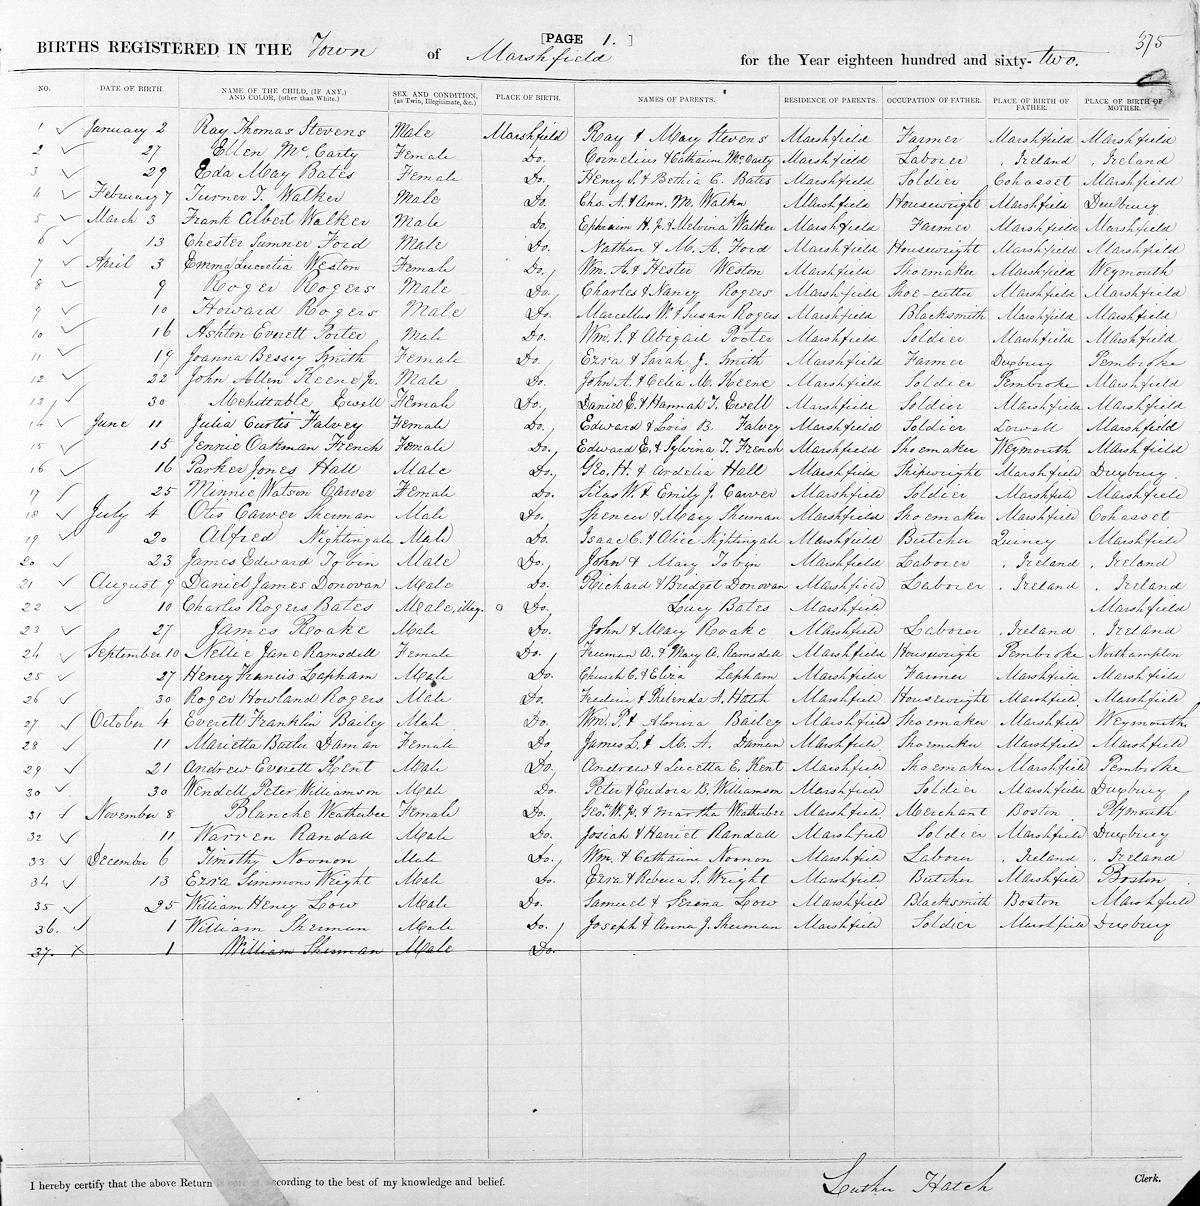 [PAGE 1.] 375
BIRTHS REGISTERED IN THE Town of Marshfield for the Year eighteen hundred and sixty-two.
NO. DATE OF BIRTH. NAME OF THE CHILD, (IF ANY,) AND COLOR, (other than White.) SEX AND CONDITION, (as Twin, Illegitimate, &c.) PLACE OF BIRTH. NAMES OF PARENTS. RESIDENCE OF PARENTS. OCCUPATION OF FATHER. PLACE OF BIRTH OF FATHER. PLACE OF BIRTH OF MOTHER.
1 January 2 Ray Thomas Stevens Male Marshfield Ray & Mary Stevens Marshfield Farmer Marshfield Marshfield
2 27 Ellen Mc.Carty Female Do. Cornelius & Catharine McCarty Marshfield Laborer Ireland Ireland
3 29 Eda May Bates Female Do. Henry S. & Bethia C. Bates Marshfield Soldier Cohasset Marshfield
4 February 7 Turner T. Walker Male Do. Chs. A. & Ann. M. Walker Marshfield Housewright Marshfield Duxbury
5 March 3 Frank Albert Walker Male Do. Ephraim H. Jr. & Melvina Walker Marshfield Farmer Marshfield Marshfield
6 13 Chester Sumner Ford Male Do. Nathan & M. A. Ford Marshfield Housewright Marshfield Marshfield
7 April 3 Emma Lucretia Weston Female Do. Wm. A. & Hester Weston Marshfield Shoemaker Marshfield Weymouth
8 9 Roger Rogers Male Do. Charles & Nancy Rogers Marshfield Shoe-cutter Marshfield Marshfield
9 10 Howard Rogers Male Do. Marcellus W. & Susan Rogers Marshfield Blacksmith Marshfield Marshfield
10 16 Ashton Everett Porter Male Do. Wm. S. & Abigail Porter Marshfield Soldier Marshfield Marshfield
11 19 Joanna Bessey Smith Female Do. Ezra & Sarah J. Smith Marshfield Farmer Duxbury Pembroke
12 22 John Allen Keene Jr. Male Do. John A. & Celia M. Keene Marshfield Soldier Pembroke Marshfield
13 30 Mehittable Ewell Female Do. Daniel E. & Hannah T. Ewell Marshfield Soldier Marshfield Marshfield
14 June 11 Julia Curtis Falvey Female Do. Edward & Lois B. Falvey Marshfield Soldier Lowell Marshfield
15 15 Jennie Oakman French Female Do. Edward E. & Sylvina T. French Marshfield Shoemaker Weymouth Marshfield
16 16 Parker Jones Hall Male Do. Geo. H. & Ardelia Hall Marshfield Shipwright Marshfield Duxbury
17 25 Minnie Watson Carver Female Do. Silas W. & Emily J. Carver Marshfield Soldier Marshfield Marshfield
18 July 4 Otis Carver Sherman Male Do. Spencer & Mary Sherman Marshfield Shoemaker Marshfield Cohasset
19 20 Alfred Nightingale Male Do. Isaac C. & Alice Nightingale Marshfield Butcher Quincy Marshfield
20 23 James Edward Tobin Male Do. John & Mary Tobyn Marshfield Laborer Ireland Ireland
21 August 9 Daniel James Donovan Male Do. Richard & Bridget Donovan Marshfield Laborer Ireland Ireland
22 10 Charles Rogers Bates Male, illeg. Do. Lucy Bates Marshfield Marshfield
23 27 James Roake Male Do. John & Mary Roake Marshfield Laborer Ireland Ireland
24 September 10 Nellie Jane Ramsdell Female Do. Freeman A. & Mary A. Ramsdell Marshfield Housewright Pembroke Northampton
25 27 Henry Francis Lapham Male Do. Church C. & Eliza Lapham Marshfield Farmer Marshfield Marshfield
26 30 Roger Howland Rogers Male Do. A. Hatch Marshfield Housewright Marshfield Marshfield
27 October 4 Everett Franklin Bailey Male Do. Wm. P. & Almira Bailey Marshfield Shoemaker Marshfield Weymouth
28 11 Marietta Butler Damon Female Do. James L. & M. A. Damon Marshfield Shoemaker Marshfield Marshfield
29 21 Andrew Everett Kent Male Do. Andrew & Lucetta E. Kent Marshfield Shoemaker Marshfield Pembroke
30 30 Wendell Peter Williamson Male Do. Peter & Eudora B. Williamson Marshfield Soldier Marshfield Duxbury
31 November 8 Blanche Weatherbee Female Do. Geo. W. Jr. & Martha Weatherbee Marshfield Merchant Boston Plymouth
32 11 Warren Randall Male Do. Josiah & Harriet Randall Marshfield Soldier Marshfield Duxbury
33 December 6 Timothy Noonon Male Do. Wm. & Catharine Noonon Marshfield Laborer Ireland Ireland
34 13 Ezra Simmons Wright Male Do. Ezra & Rebecca S. Wright Marshfield Butcher Marshfield Boston
35 25 William Henry Low Male Do. Samuel & Serena Low Marshfield Blacksmith Boston Marshfield
36. 1 William Sherman Male Do. Joseph & Anna J. Sherman Marshfield Soldier Marshfield Duxbury
37. x 1 William Sherman Male Do.
I hereby certify that the above Return according to the best of my knowledge and belief. Luther Hatch Clerk.